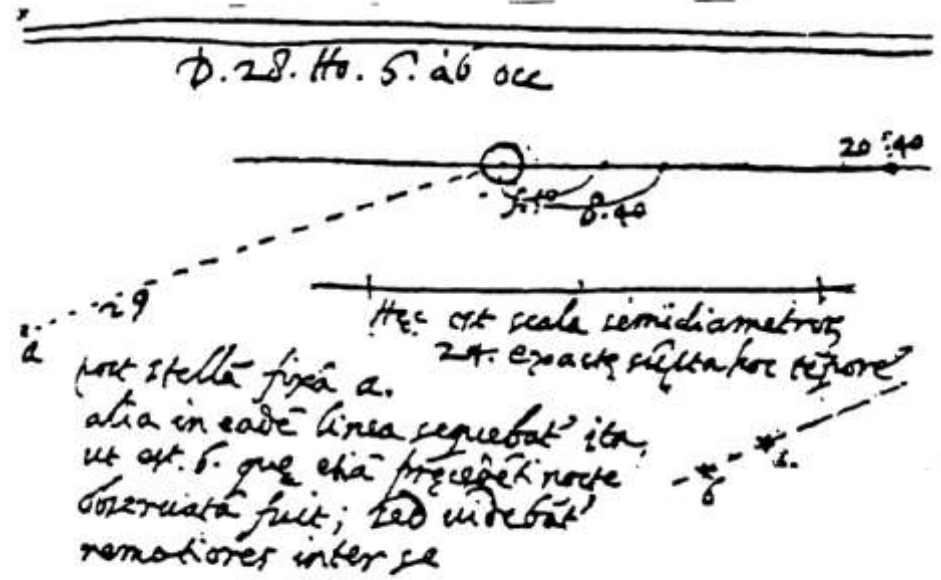 D. 28. Ho. 5. ab occ
20 . 40
5.10 8.40
29
a
Hęc est scala semidiametroꝝ
24. exactę sūpta hoc tēpore
post stellā fixā a.
alia in eadē linea sequebat' ita,
ut est . b . quę etiā pręcedēti nocte
obseruata fuit; sed uidebāt'
remotiores inter se
a.
b